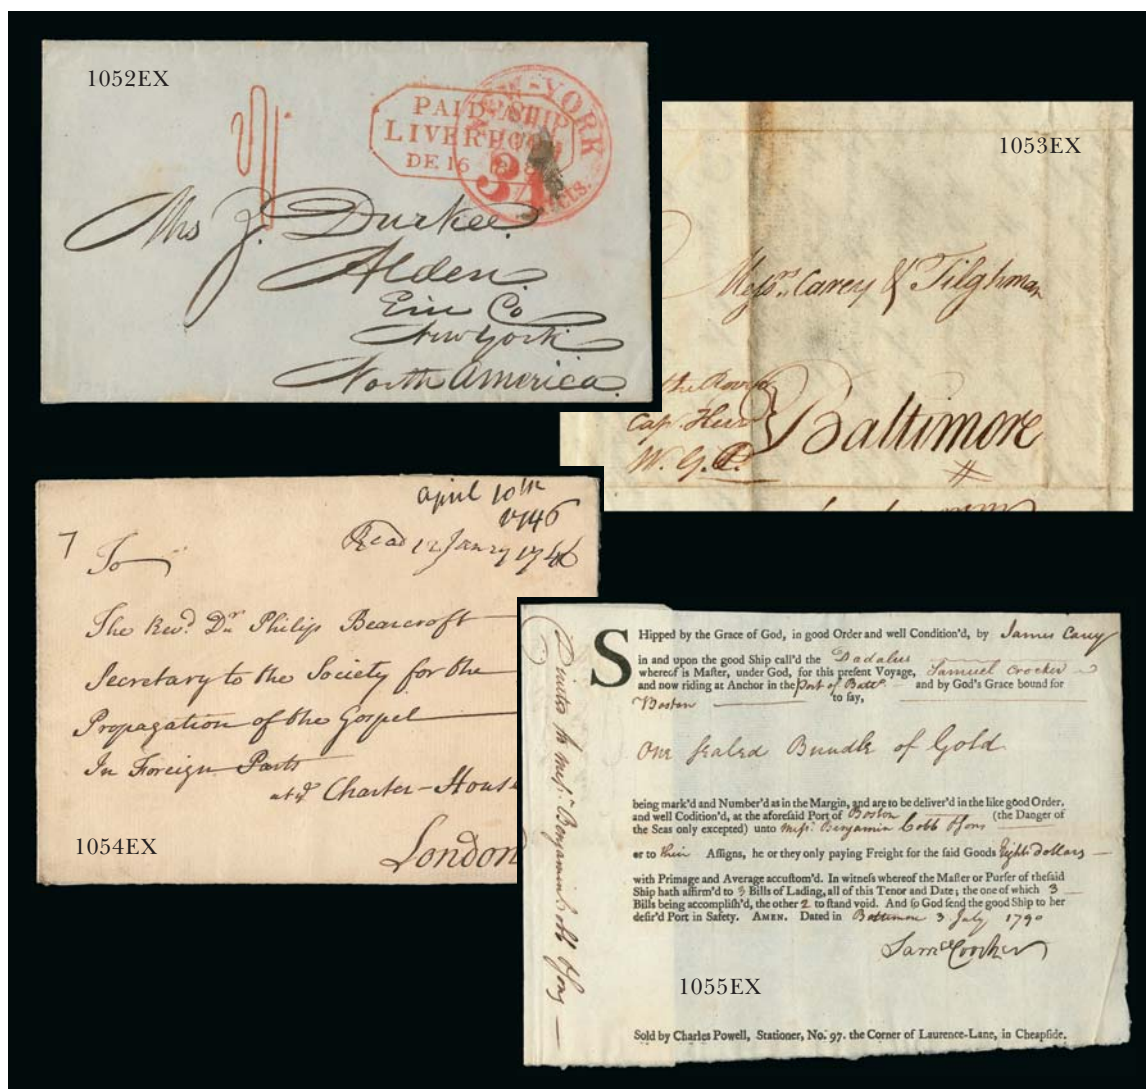 1052EX
NEW-YORK
PAID SHIP
LIVERPOOL
DE 16
34
cts.
Mrs J. Durkee
Alden
Erie Co
New York
North America
1053EX
Messrs. Carey & Tilghman
Cap. Herr
W. G. C.
Baltimore
april 10th
1746
Read 12 Janry 1746
7
To
The Revd. Dr. Philip Bearcroft
Secretary to the Society for the
Propagation of the Gospel
In Foreign Parts
at ye Charter-House
London
1054EX
SHipped by the Grace of God, in good Order and well Condition'd, by James Carey
in and upon the good Ship call'd the Dadalus
whereof is Maſter, under God, for this preſent Voyage, Samuel Crocker
and now riding at Anchor in the Port of Balt. and by God's Grace bound for
Boston to ſay,
One Sealed Bundle of Gold
being mark'd and Number'd as in the Margin, and are to be deliver'd in the like good Order,
and well Codition'd, at the aforeſaid Port of Boston (the Danger of
the Seas only excepted) unto Messr. Benjamin Cobb & Sons
or to their Aſſigns, he or they only paying Freight for the ſaid Goods Eight dollars
with Primage and Average accuſtom'd. In witneſs whereof the Maſter or Purſer of theſaid
Ship hath affirm'd to 3 Bills of Lading, all of this Tenor and Date; the one of which 3
Bills being accompliſh'd, the other 2 to ſtand void. And ſo God ſend the good Ship to her
deſir'd Port in Safety. AMEN. Dated in Baltimore 3 July 1790
Saml Crocker
Directed to Messr. Benjamin Cobb & Sons
1055EX
Sold by Charles Powell, Stationer, No. 97. the Corner of Laurence-Lane, in Cheapſide.